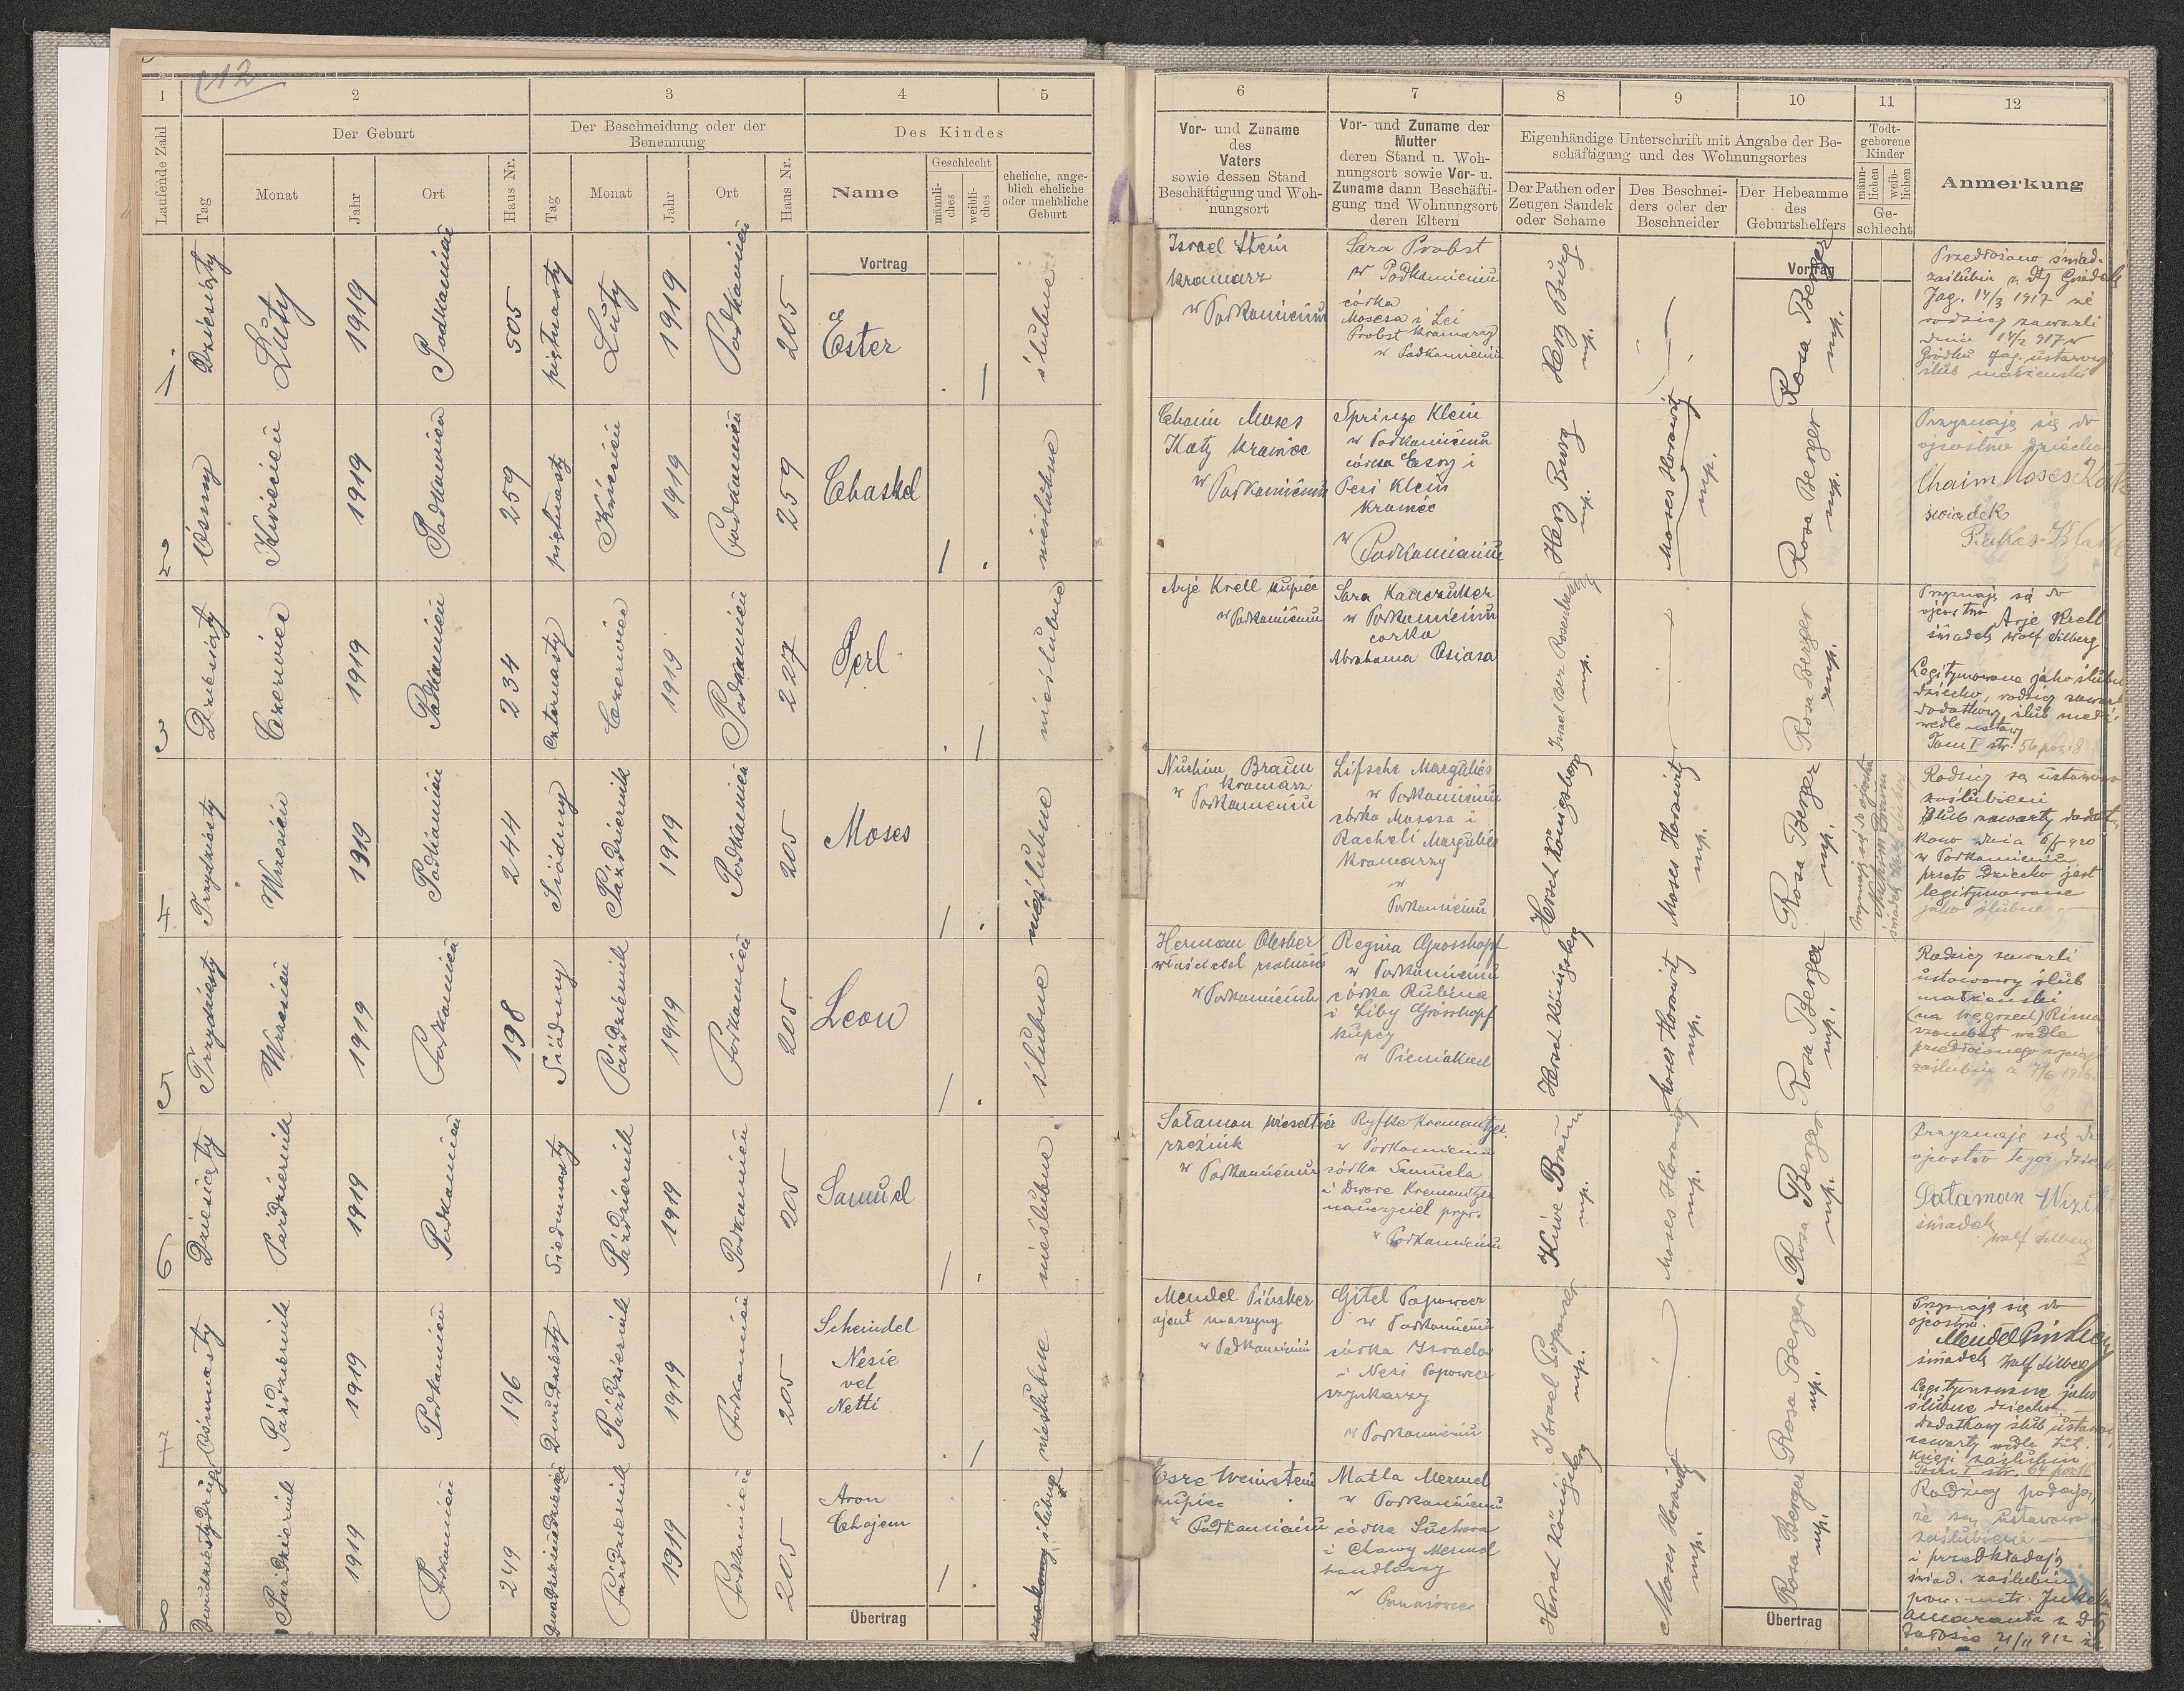 12
1
2
3
4
5
Laufende Zahl
Der Geburt
Der Beschneidung oder der
Benennung
Des Kindes
Tag
Monat
Jahr
Ort
Haus Nr.
Tag
Monat
Jahr
Ort
Haus Nr.
Name
Geschlecht
männli-
ches
weibli-
ches
eheliche, ange-
blich eheliche
oder uneheliche
Geburt
Vortrag
1
Dziesiąty
Luty
1919
Podkamień
505
piętnasty
Luty
1919
Podkamień
205
Ester
ślubne
2
Ósmy
Kwiecień
1919
Podkamień
259
piętnasty
Kwiecień
1919
Podkamień
259
Chaskel
nieślubne
3
Dziewiąty
Czerwiec
1919
Podkamień
234
czternasty
Czerwiec
1919
Podkamień
227
Perl
nieślubne
4
Trzydziesty
Wrzesień
1919
Podkamień
244
Siódmy
Październik
1919
Podkamień
205
Moses
nieślubne
5
Trzydziesty
Wrzesień
1919
Podkamień
198
Siódmy
Październik
1919
Podkamień
205
Leon
ślubne
6
Dziesiąty
Październik
1919
Podkamień
Siedmnasty
Październik
1919
Podkamień
205
Samuel
nieślubne
7
Ósmnasty
Październik
1919
Podkamień
196
Dwudziesty
Październik
1919
Podkamień
205
Scheindel
Nesie
vel
Netti
nieślubne
8
Październik
1919
Podkamień
249
Październik
1919
Podkamień
205
Aron
Chajem
ślubne
Übertrag
6
7
8
9
10
11
12
Vor- und Zuname
des
Vaters
sowie dessen Stand
Beschäftigung und Woh-
nungsort
Vor- und Zuname der
Mutter
deren Stand u. Woh-
nungsort sowie Vor- u.
Zuname dann Beschäfti-
gung und Wohnungsort
deren Eltern
Eigenhändige Unterschrift mit Angabe der Be-
schäftigung und des Wohnungsortes
Der Pathen oder
Zeugen Sandek
oder Schame
Des Beschnei-
ders oder der
Beschneider
Der Hebeamme
des
Geburtshelfers
Todt-
geborene
Kinder
männ-
lichen
weib-
lichen
Ge-
schlecht
Anmerkung
Vortrag
Israel Stein
kramarz
w Podkamieniu
Sara Probst
w Podkamieniu
córka
Mosesa i Lei
Probst kramarzy
w Podkamieniu
Herz Burg
mp.
Rosa Berger
mp.
Przedłożono świad.
zaślubin z dtj Gródek
Jag. 14/3 1917 że
rodzice zawarli
Gródku Jag. ustawowy
ślub małżeński
Chaim Moses
Katz kramarz
w Podkamieniu
Sprinze Klein
w Podkamieniu
córka Esry i
Pesi Klein
w
Podkamieniu
Herz Burg
mp.
Moses Horowitz
mp.
Rosa Berger
mp.
Przyznaję się do
ojcostwa dziecka
Chaim Moses Katz
świadek
Arje Krell kupiec
w Podkamieniu
Sara Kanczuker
w Podkamieniu
córka
Abrahama Osiasa
mp.
Rosa Berger
mp.
Przyznaję się do
ojcostwa Arje Krell
świadek Wolf Silberg
Legitymowane jako ślubne
dziecko, rodzice zawarli
dodatkowy ślub małż.
wedle ustawy
Tom I str. 56 poz. 8
Nuchim Braun
kramarz
w Podkamieniu
Lifsche Margulies
w Podkamieniu
córka Mosesa i
Racheli Margulies
kramarzy
w
Podkamieniu
Hersch Königsberg
Moses Horowitz
mp.
Rosa Berger
mp.
Przyznaję się do ojcostwa
Nuchim Braun
Rodzice są ustawowo
zaślubieni
Ślub zawarty dodat-
kowo dnia 6/5 920
w Podkamieniu
przeto dziecko jest
legitymowane
jako ślubne.
Herman Olesker
właściciel realności
w Podkamieniu
Regina Grosskopf
w Podkamieniu
córka Rubina
i Liby Grosskopf
kupcy
w Pieniakach
Hersch Königsberg
Moses Horowitz
mp.
Rosa Berger
mp.
Rodzice zawarli
ustawowy ślub
małżeński
(na Węgrzech) Rima
szombat wedle
przedłożonego
zaślubin z 7/6 1916.
Sałamon Wieseltier
rzeźnik
w Podkamieniu
Ryfke Kremnitzer
w Podkamieniu
córka Samuela
i Dwore Kremnitzer
nauczyciel pryw.
w Podkamieniu
Kiwe Braun
mp.
Moses Horowitz
mp.
Rosa Berger
mp.
Przyznaję się do
ojcostwa tegoż dziecka
świadek
Wolf Silberg
Mendel Pinsker
ajent maszyny
w Podkamieniu
Gitel Popowcer
w Podkamieniu
córka Israela
i Nesi Popowcer
szynkarzy
w Podkamieniu
Israel Popowcer
mp.
Rosa Berger
mp.
Przyznaję się do
ojcostwa.
Mendel Pinsker
świadek Wolf Silberg
Legitymowane jako
ślubne dziecko
Dodatkowy ślub ustawowy
zawarty wedle tut.
księgi zaślubin
Tom I str. 64
Esre Weinstein
kupiec
w Podkamieniu
Matla Mermel
w Podkamieniu
córka Suchera
i Chawy Mermel
handlarzy
w
Hersch Königsberg
Moses Horowitz
mp.
Rosa Berger
mp.
Rodzice podają,
że są ustawowo
zaślubieni
i przedkładają
świad. zaślubin
Załośce 21/11 912
Übertrag